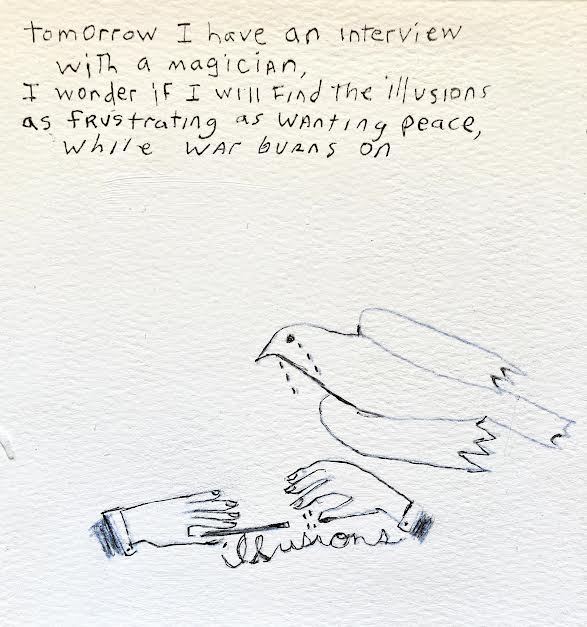 tomorrow I have an interview
with a magician,
I wonder if I will find the illusions
as frustrating as wanting peace,
while war burns on
illusions